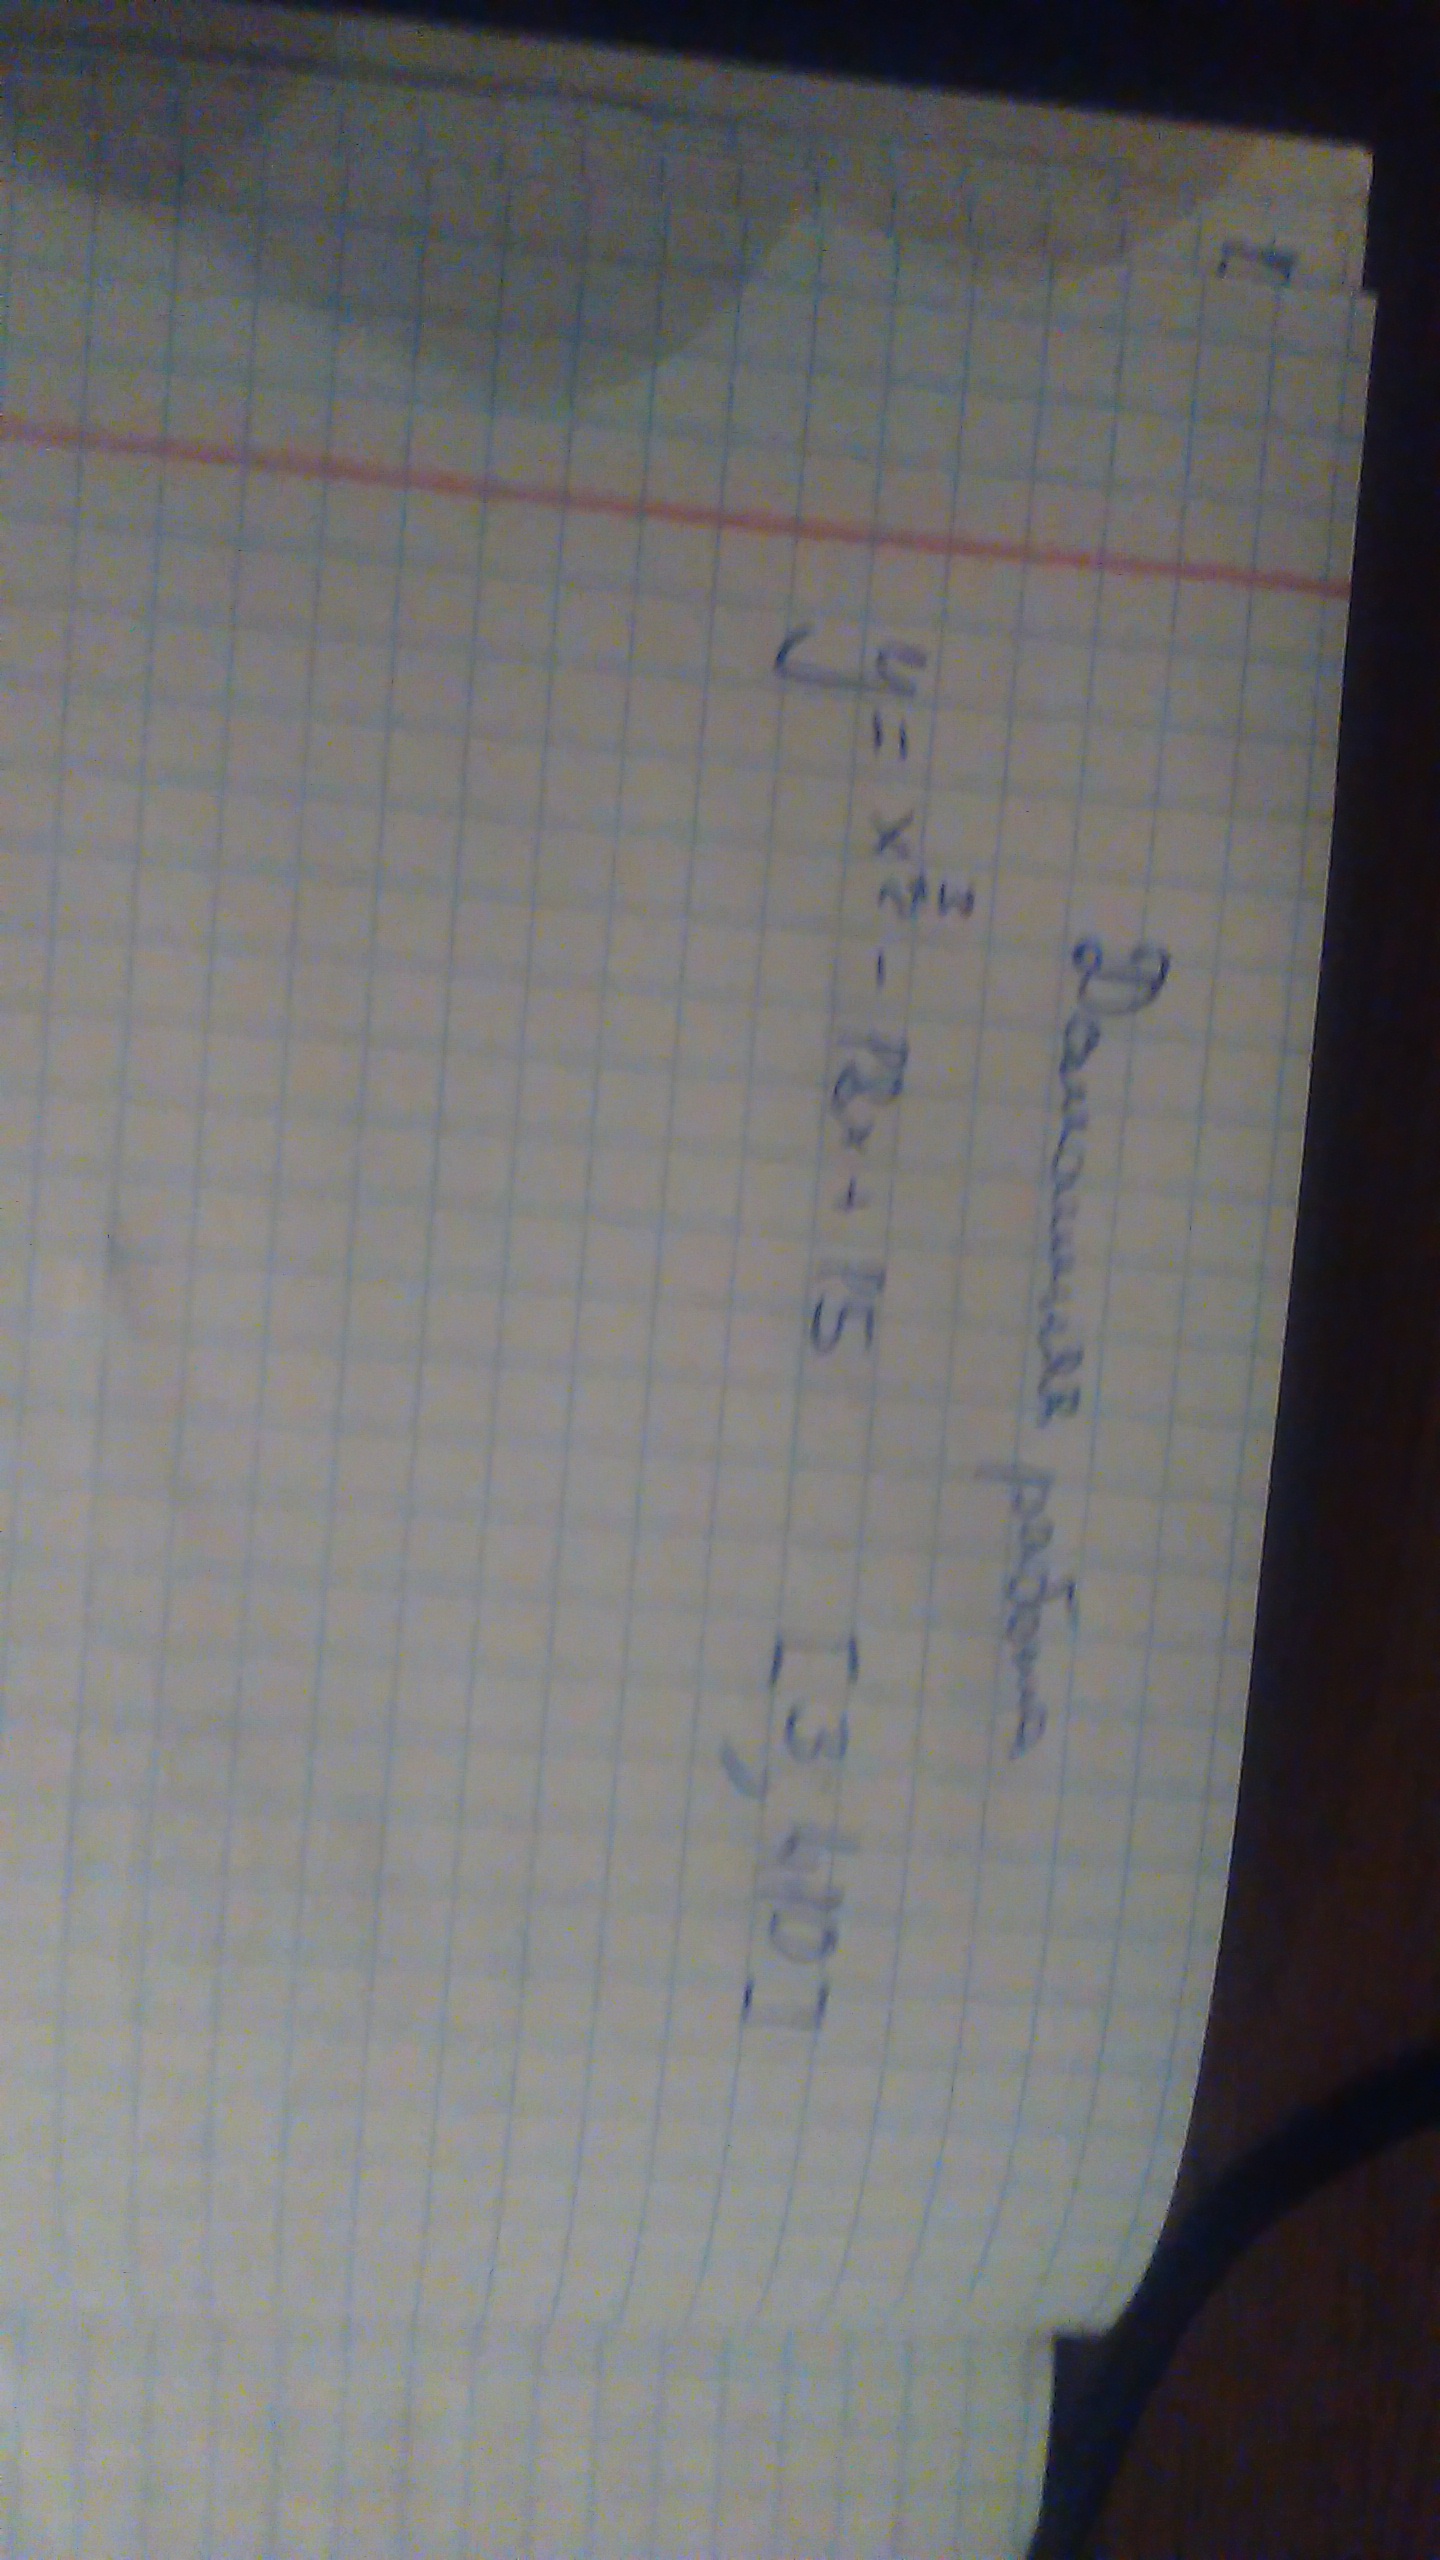 Домашняя работа
y = x^3/2 - 12x + 15 [3, 40]